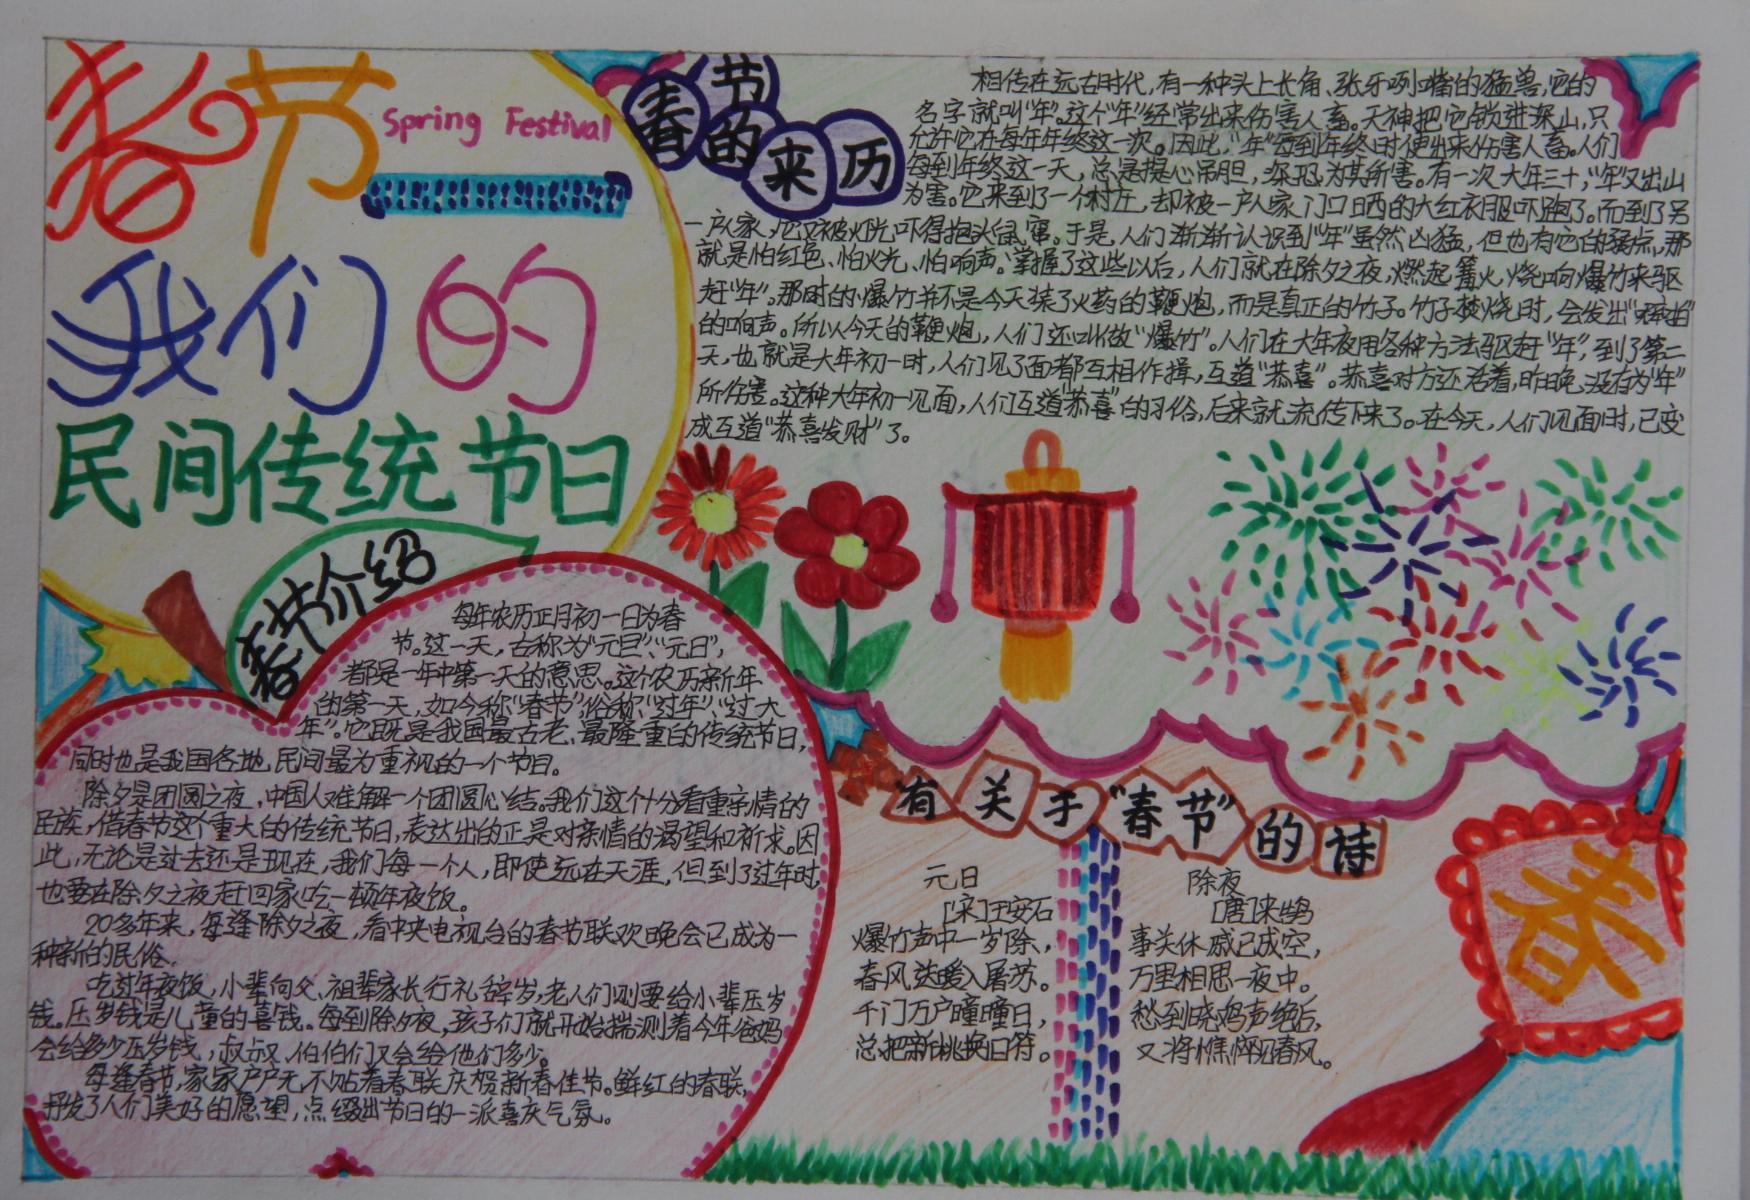 春节
Spring Festival
我们的
民间传统节日
春节的来历
相传在远古时代,有一种头上长角、张牙咧嘴的猛兽,它的
名字就叫“年”。这个“年”经常出来伤害人畜。天神把它锁进深山,只
允许它在每年年终这一次。因此,“年”每到年终时便出来伤害人畜。人们
每到年终这一天,总是提心吊胆,深恐为其所害。有一次大年三十,“年”又出山
为害。它来到了一个村庄,却被一户人家门口晒的大红衣服吓跑了。而到了另
一户人家,它又被火光吓得抱头鼠窜。于是,人们渐渐认识到“年”虽然凶猛,但也有它的弱点,那
就是怕红色、怕火光、怕响声。掌握了这些以后,人们就在除夕之夜,燃起篝火,烧响爆竹来驱
赶“年”。那时的爆竹并不是今天装了火药的鞭炮,而是真正的竹子。竹子焚烧时,会发出“噼啪”
的响声。所以今天的鞭炮,人们还叫做“爆竹”。人们在大年夜用各种方法驱赶“年”,到了第二
天,也就是大年初一时,人们见了面都互相作揖,互道“恭喜”。恭喜对方还活着,昨晚没有为“年”
所伤害。这种大年初一见面,人们互道“恭喜”的习俗,后来就流传下来了。在今天,人们见面时,已变
成互道“恭喜发财”了。
春节介绍
每年农历正月初一日为春
节。这一天,古称为“元旦”、“元日”,
都是一年中第一天的意思。这个农历新年
的第一天,如今称“春节”,俗称“过年”、“过大
年”。它既是我国最古老、最隆重的传统节日,
同时也是我国各地民间最为重视的一个节日。
除夕是团圆之夜,中国人难解一个团圆心结。我们这个十分看重亲情的
民族,借春节这个重大的传统节日,表达出的正是对亲情的渴望和祈求。因
此,无论是过去还是现在,我们每一个人,即使远在天涯,但到了过年时,
也要在除夕之夜赶回家吃一顿年夜饭。
20多年来,每逢除夕之夜,看中央电视台的春节联欢晚会已成为一
种新的民俗。
吃过年夜饭,小辈向父、祖辈家长行礼辞岁,老人们则要给小辈压岁
钱。压岁钱是儿童的喜钱。每到除夕夜,孩子们就开始揣测着今年爸妈
会给多少压岁钱,叔叔、伯伯们又会给他们多少。
每逢春节,家家户户无不贴着春联庆贺新春佳节。鲜红的春联,
抒发了人们美好的愿望,点缀出节日的一派喜庆气氛。
有关于“春节”的诗
元日
[宋]王安石
爆竹声中一岁除,
春风送暖入屠苏。
千门万户曈曈日,
总把新桃换旧符。
除夜
[唐]来鹄
事关休戚已成空,
万里相思一夜中。
愁到晓鸡声绝后,
又将憔悴见春风。
春